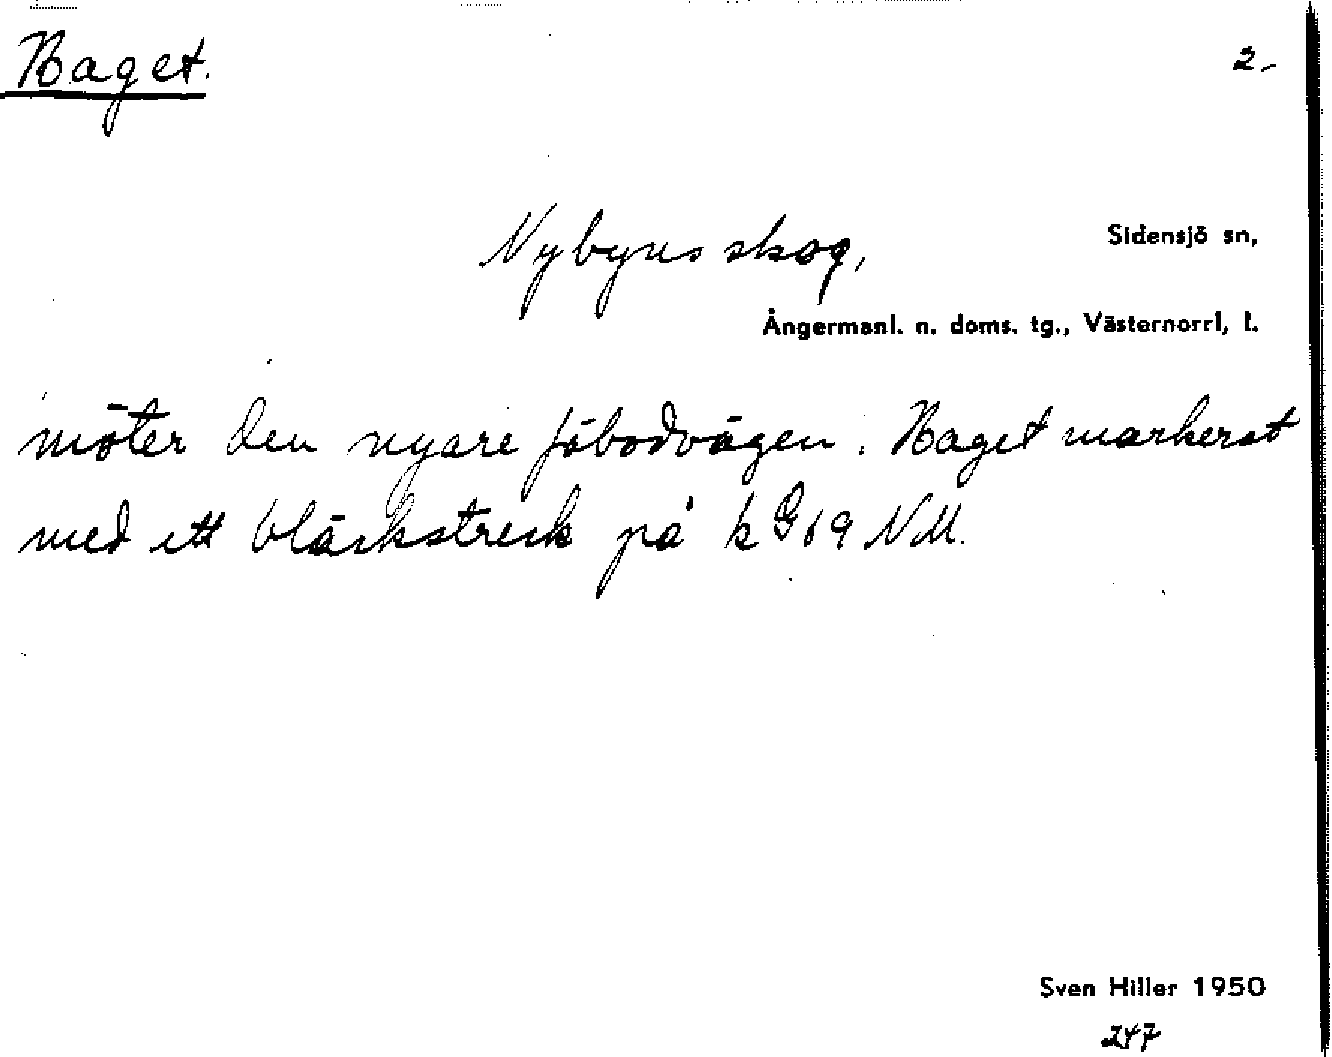 Baget.
2.
Nybyns skog,
Sidensjö sn,
Ångermanl. n. doms. tg., Västernorrl, l.
möter den nyare fäbodvägen. Baget markerat
med ett bläckstreck på k G 19 NM.
Sven Hiller 1950
247